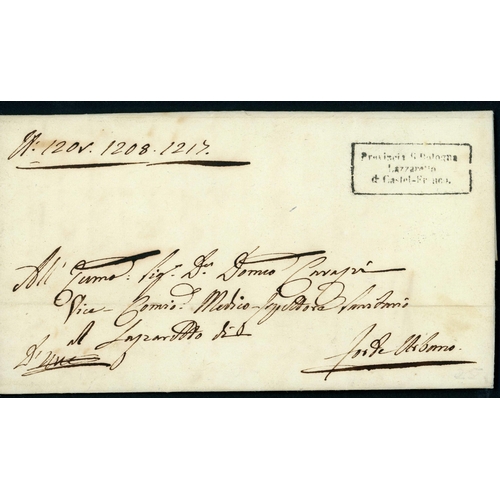 N.i 1205. 1208. 1217.
Provincia di Bologna
Lazzaretto
di Castel-Franco.
All' Sig.r D.r Domco Carapi
Vice - Comiso. Medico Ispettore Sanitario
al Lazzaretto di
Forte Urbano.